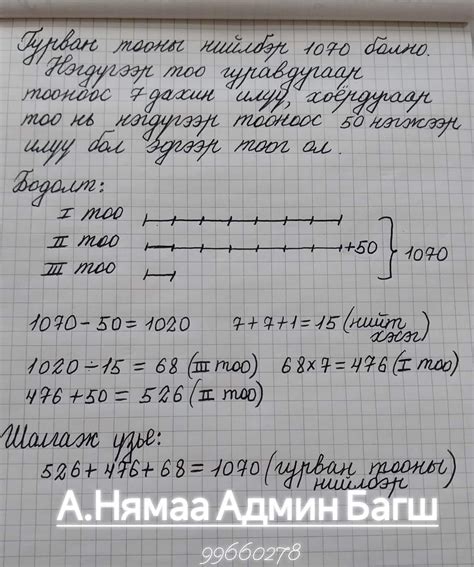 Гурван тооны нийлбэр 1070 болно.
Нэгдүгээр тоо гуравдугаар
тооноос 7 дахин илүү, хоёрдугаар
тоо нь нэгдүгээр тооноос 50 нэгжээр
илүү бол эдгээр тоог ол.
Бодолт:
I тоо
II тоо +50 1070
III тоо
1070-50=1020 7+7+1=15 (нийт
хэсэг)
1020÷15=68 (III тоо) 68×7=476 (I тоо)
476+50=526 (II тоо)
Шалгаж үзье:
526+476+68=1070 (гурван тооны
нийлбэр
А.Нямаа Админ Багш
99660278